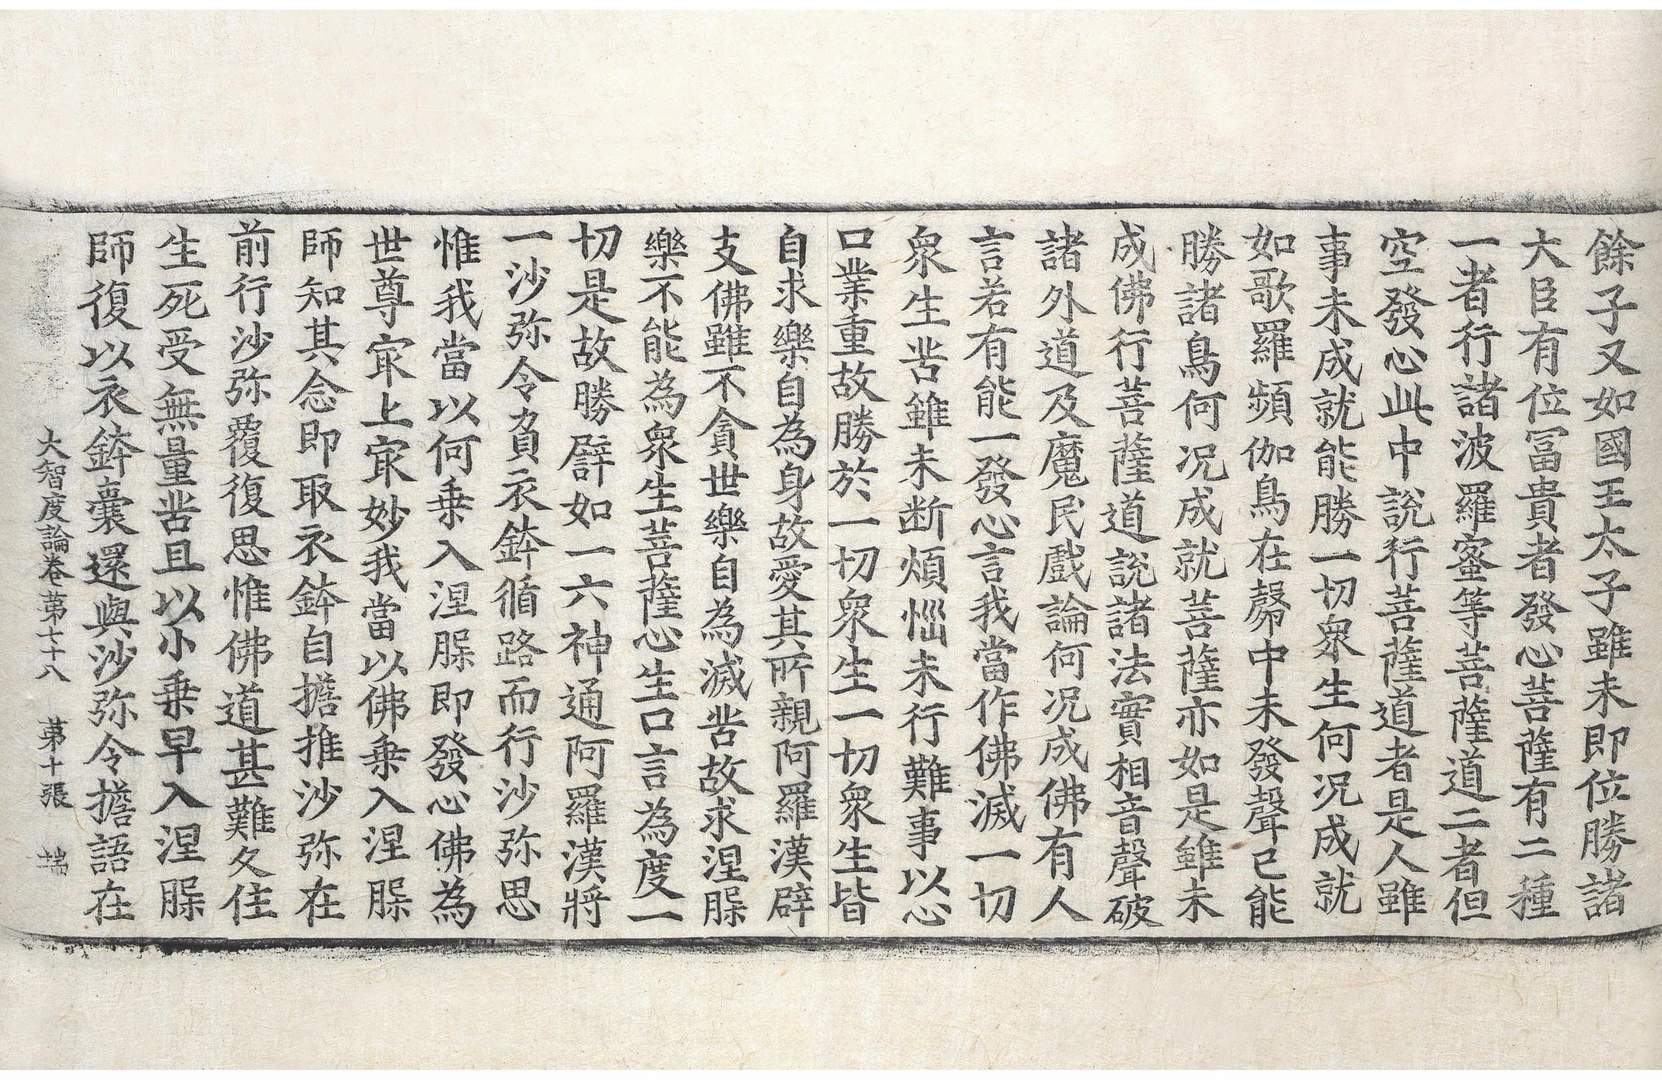 餘子又如國王太子雖未即位勝諸
大臣有位冨貴者發心菩薩有二種
一者行諸波羅蜜等菩薩道二者但
空發心此中說行菩薩道者是人雖
事未成就能勝一切衆生何況成就
如歌羅頻伽鳥在㲉中未發聲已能
勝諸鳥何況成就菩薩亦如是雖未
成佛行菩薩道說諸法實相音聲破
諸外道及魔民戲論何況成佛有人
言若有能一發心言我當作佛滅一切
衆生苦雖未断煩惱未行難事以心
口業重故勝於一切衆生一切衆生皆
自求樂自為身故愛其所親阿羅漢辟
支佛雖不貪世樂自為滅苦故求涅槃
樂不能為衆生菩薩心生口言為度一
切是故勝譬如一六神通阿羅漢將
一沙弥令負衣鉢循路而行沙弥思
惟我當以何乗入涅槃即發心佛為
世尊㝡上㝡妙我當以佛乗入涅槃
師知其念即取衣鉢自擔推沙弥在
前行沙弥覆復思惟佛道甚難久住
生死受無量苦且以小乗早入涅槃
師復以衣鉢囊還與沙弥令擔語在
大智度論卷第七十八　第十張　端